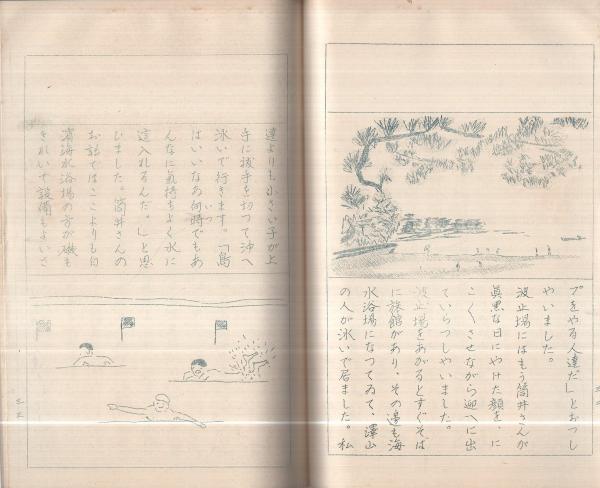 プをやる人達だ」とおつし
やいました。
波止場にはもう筒井さんが
眞黒な日にやけた顔を、に
こ〱させながら迎へに出
ていらつしやいました。
波止場をあがるとすぐそば
に旅館があり、その邊も海
水浴場になつてゐて、澤山
の人が泳いで居ました。私
達よりも小さい子が上
手に抜手を切つて沖へ
泳いで行きます。「島
はいいなあ何時でもあ
いつ
んなに気持もよく水に
這入れるんだ。」と思
ひました。筒井さんの
お話ではここよりも白
濱海水浴場の方が磯も
きれいで設備もよいさ